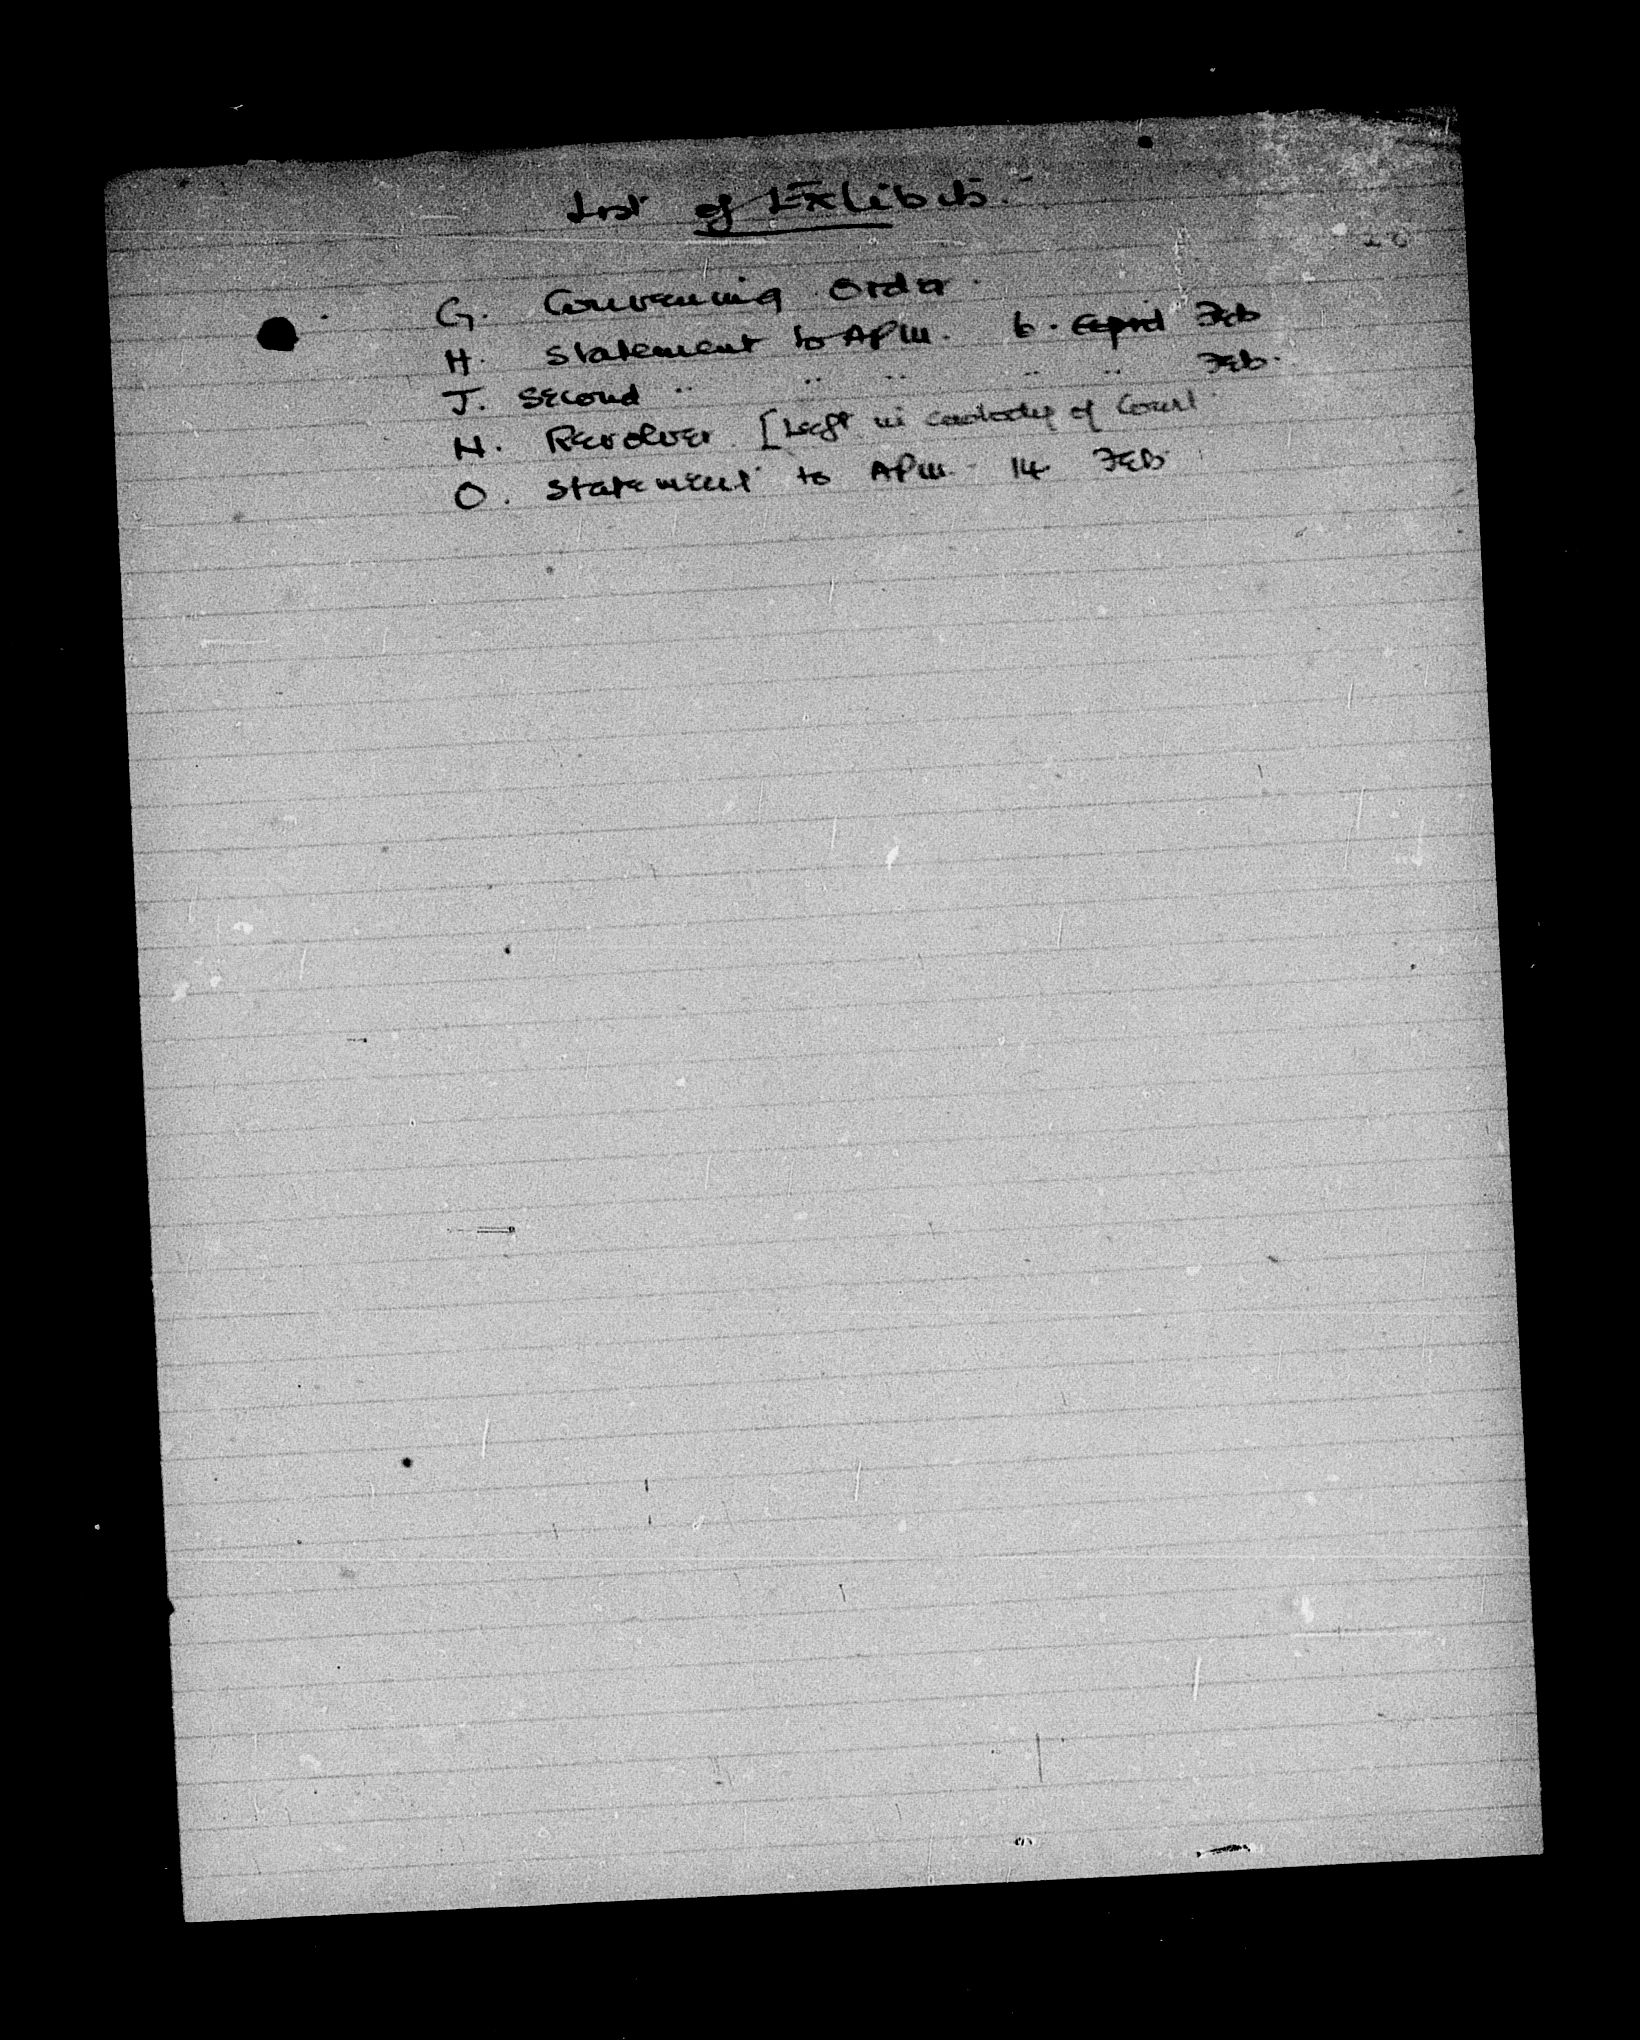 List of Exhibits.
20
G. Convening Order.
H. Statement to APM. 6. April Feb
J. Second " " " " " Feb.
N. Revolver [Left in custody of Court.
O. Statement to APM. 14 Feb.